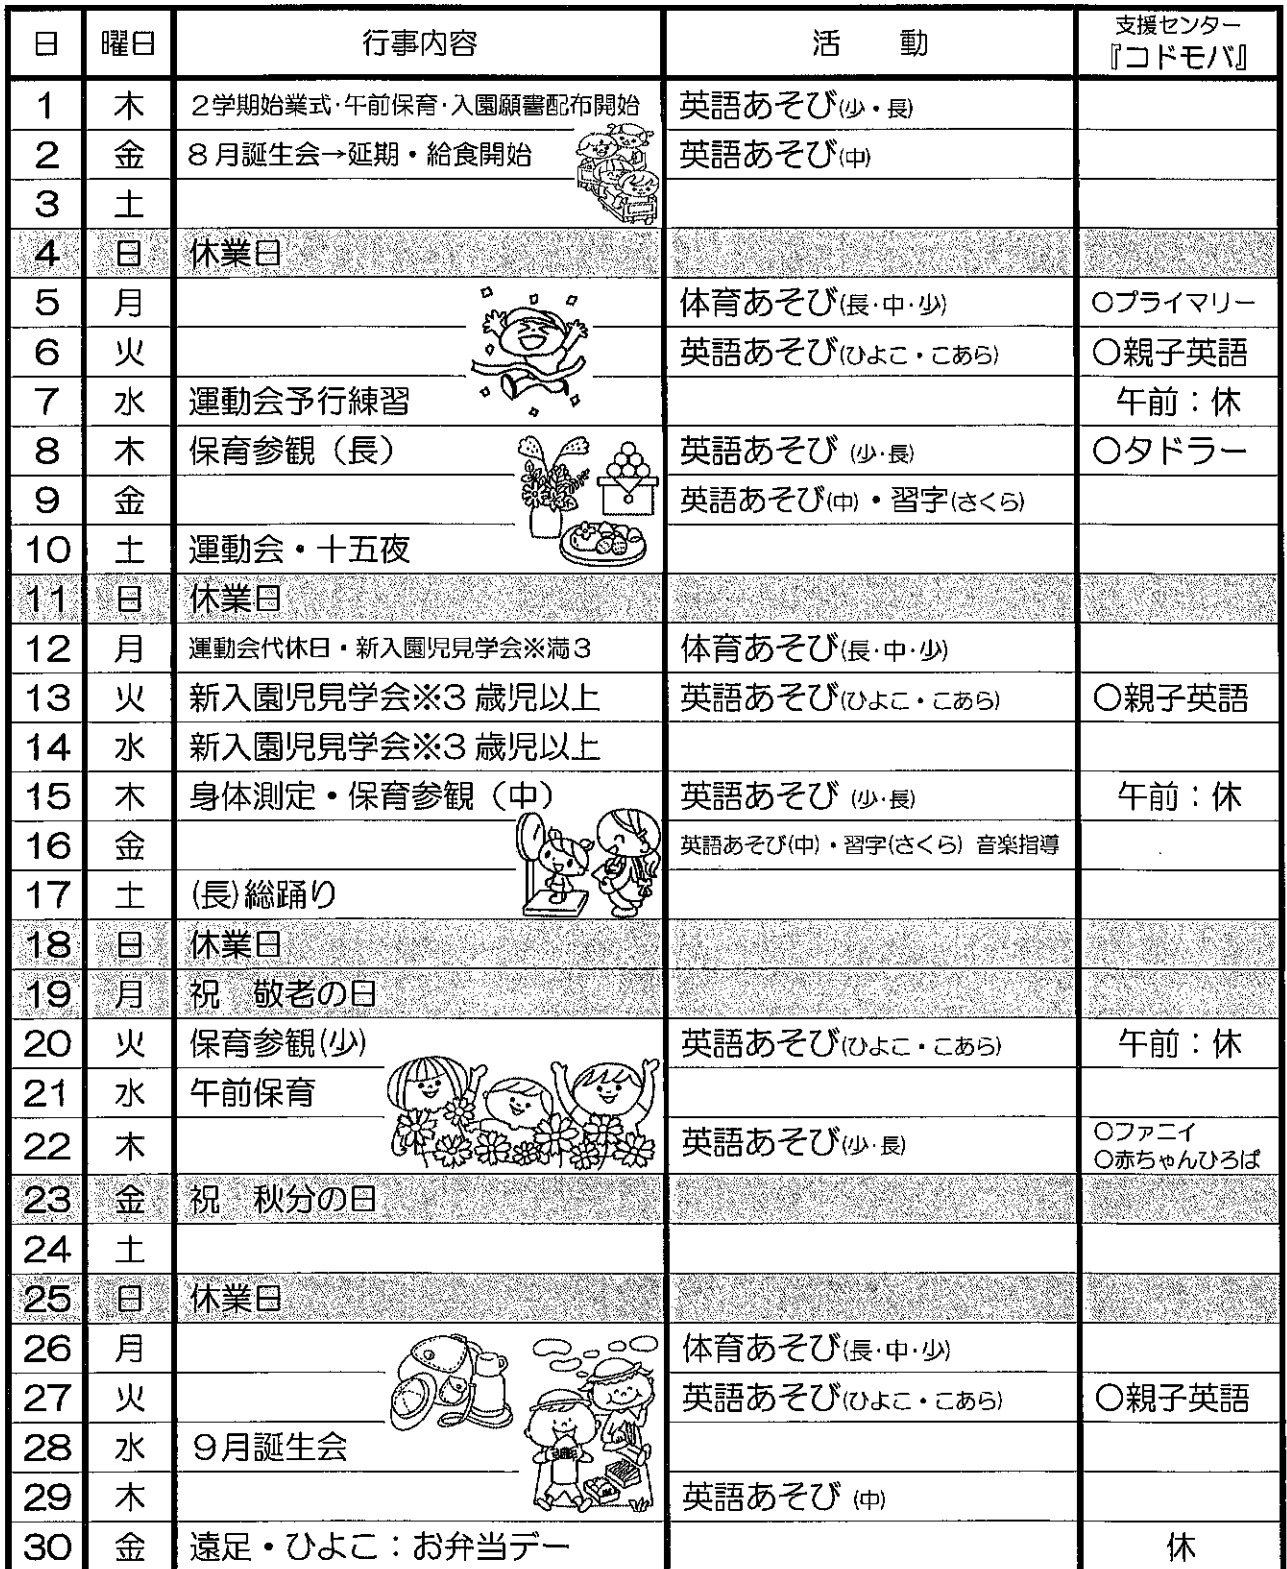 日 曜日 行事内容 活 動 支援センター
『コドモバ』
1 木 2学期始業式・午前保育・入園願書配布開始 英語あそび(少・長)
2 金 8月誕生会→延期・給食開始 英語あそび(中)
3 土
4 日 休業日
5 月 体育あそび(長・中・少) ○プライマリー
6 火 英語あそび(ひよこ・こあら) ○親子英語
7 水 運動会予行練習 午前：休
8 木 保育参観（長） 英語あそび (少・長) ○タドラー
9 金 英語あそび(中)・習字(さくら)
10 土 運動会・十五夜
11 日 休業日
12 月 運動会代休日・新入園児見学会※満3 体育あそび(長・中・少)
13 火 新入園児見学会※3歳児以上 英語あそび(ひよこ・こあら) ○親子英語
14 水 新入園児見学会※3歳児以上
15 木 身体測定・保育参観（中） 英語あそび (少・長) 午前：休
16 金 英語あそび(中)・習字(さくら) 音楽指導
17 土 (長)総踊り
18 日 休業日
19 月 祝 敬老の日
20 火 保育参観(少) 英語あそび(ひよこ・こあら) 午前：休
21 水 午前保育
22 木 英語あそび(少・長) ○ファニイ
○赤ちゃんひろば
23 金 祝 秋分の日
24 土
25 日 休業日
26 月 体育あそび(長・中・少)
27 火 英語あそび(ひよこ・こあら) ○親子英語
28 水 9月誕生会
29 木 英語あそび (中)
30 金 遠足・ひよこ：お弁当デー 休